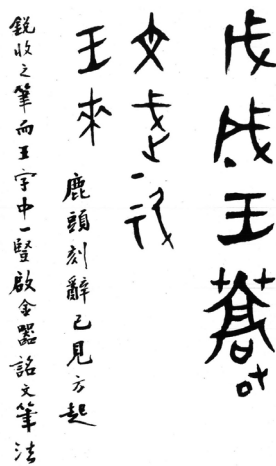 戊戌王蒿田
文武丁
王來
鹿頭刻辭已見方起
銳收之筆而王字中一豎啟金器銘文筆法